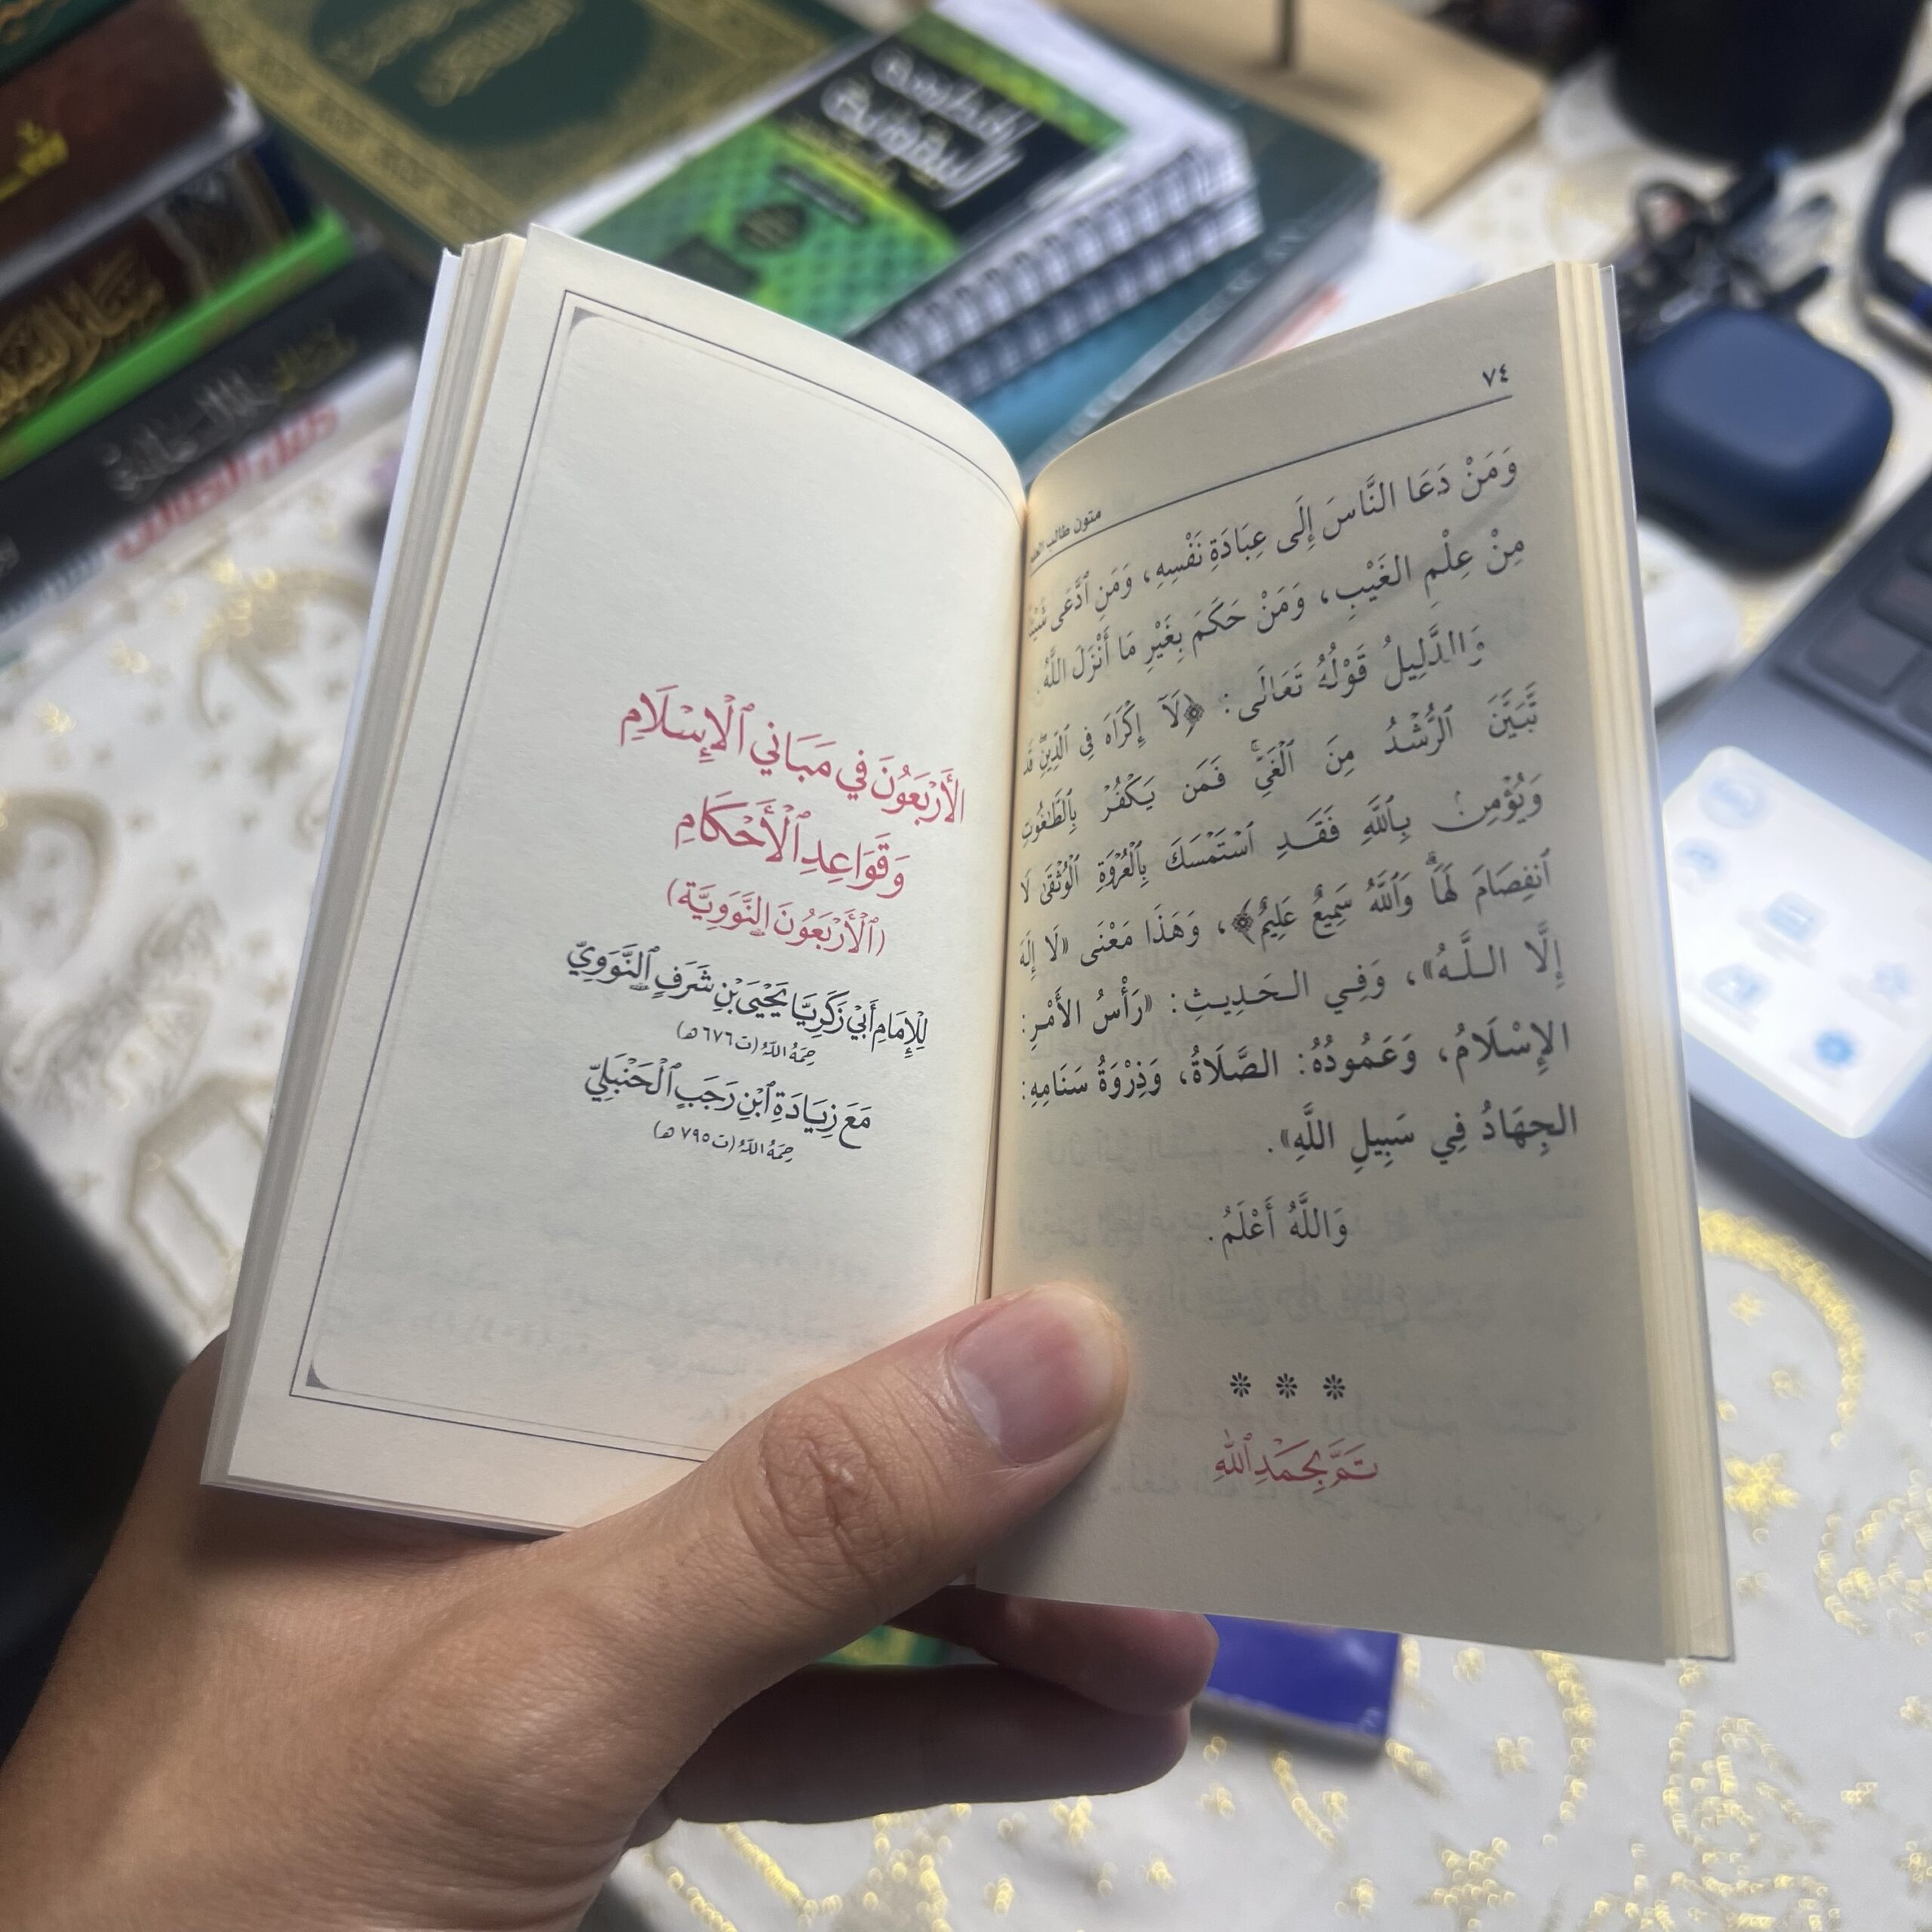 ٧٤
متون طالب
وَمَنْ دَعَا النَّاسَ إِلَى عِبَادَةِ نَفْسِهِ، وَمَنِ ٱدَّعَى شَيْئًا
مِنْ عِلْمِ الغَيْبِ، وَمَنْ حَكَمَ بِغَيْرِ مَا أَنْزَلَ اللَّهُ.
وَالدَّلِيلُ قَوْلُهُ تَعَالَى: ﴿لَآ إِكْرَاهَ فِى ٱلدِّينِۖ قَد
تَّبَيَّنَ ٱلرُّشْدُ مِنَ ٱلْغَيِّۚ فَمَن يَكْفُرْ بِٱلطَّٰغُوتِ
وَيُؤْمِنۢ بِٱللَّهِ فَقَدِ ٱسْتَمْسَكَ بِٱلْعُرْوَةِ ٱلْوُثْقَىٰ لَا
ٱنفِصَامَ لَهَاۗ وَٱللَّهُ سَمِيعٌ عَلِيمٌ﴾، وَهَذَا مَعْنَى «لَا إِلَهَ
إِلَّا اللَّهُ»، وَفِي الحَدِيثِ: «رَأْسُ الأَمْرِ:
الإِسْلَامُ، وَعَمُودُهُ: الصَّلَاةُ، وَذِرْوَةُ سَنَامِهِ:
الجِهَادُ فِي سَبِيلِ اللَّهِ».
وَاللَّهُ أَعْلَمُ.
تَمَّ بِحَمْدِ ٱللَّهِ
الأَرْبَعُونَ فِي مَبَانِي ٱلْإِسْلَامِ
وَقَوَاعِدِ ٱلْأَحْكَامِ
(ٱلْأَرْبَعُونَ النَّوَوِيَّة)
لِلْإِمَامِ أَبِي زَكَرِيَّا يَحْيَىٰ بْنِ شَرَفٍ ٱلنَّوَوِيِّ
رَحِمَهُ اللَّهُ (ت ٦٧٦ هـ)
مَعَ زِيَادَةِ ٱبْنِ رَجَبٍ ٱلْحَنْبَلِيِّ
رَحِمَهُ اللَّهُ (ت ٧٩٥ هـ)